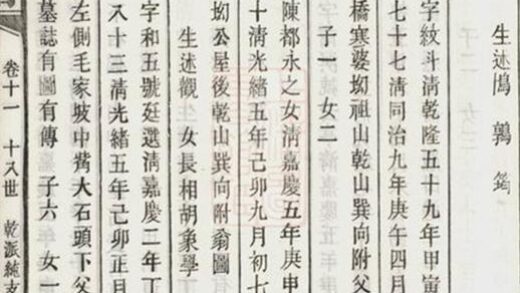 生述鳩 鶉 鶴
字紋斗清乾隆五十九年甲寅
七十七清同治九年庚午四月
橋寒婆坳祖山乾山巽向附父
子一 女二
陳都永之女清嘉慶五年庚申
十清光緒五年己卯九月初七
坳公屋後乾山巽向附翁圖
生述觀 女長相胡象學
字和五號廷選清嘉慶二年丁
八十三清光緒五年己卯正月
左側毛家坡中嘴大石頭下父
墓誌有圖有傳 子六 女一
卷十一 十八世 乾派純支